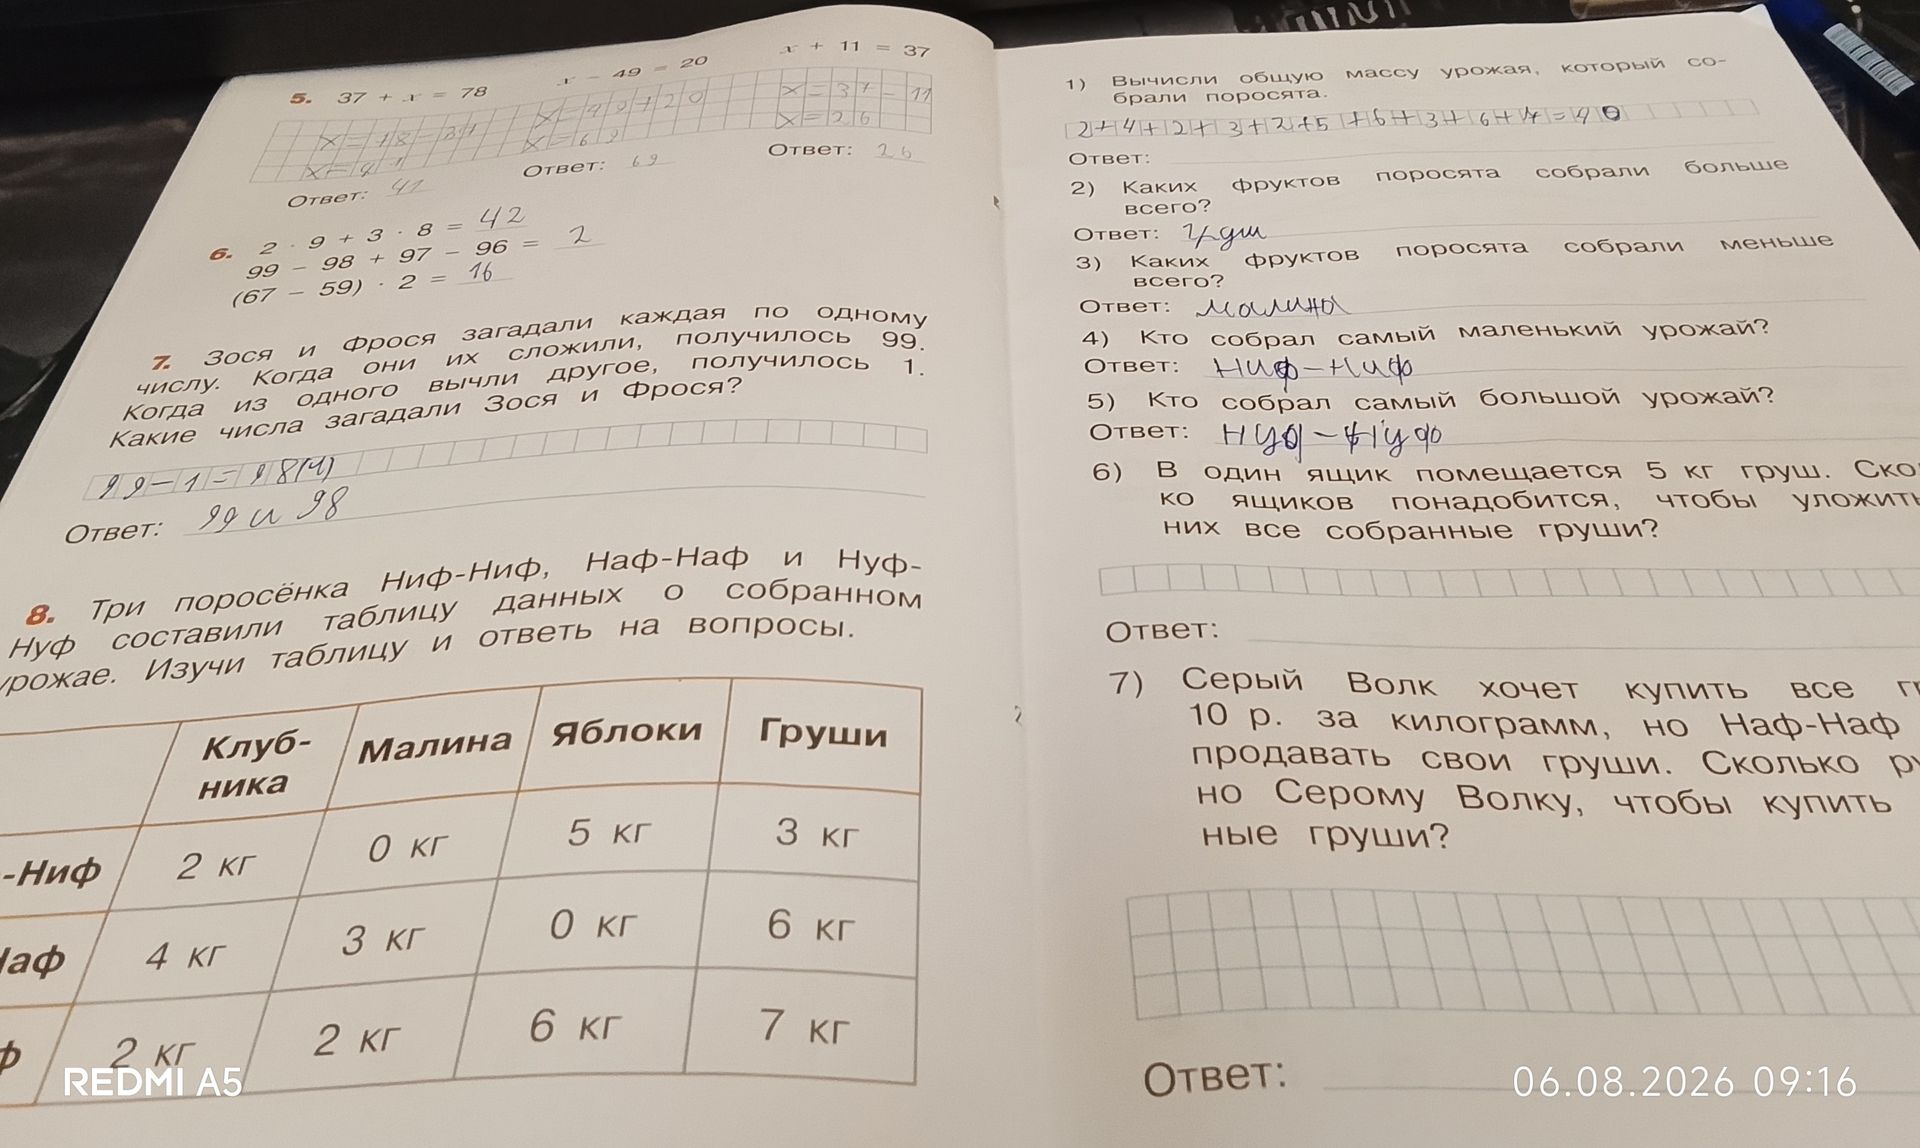 5. 37 + x = 78
x − 49 = 20
x + 11 = 37
x = 49 + 20
x = 69
x = 37 − 11
x = 26
Ответ: 41
Ответ: 69
Ответ: 26
6. 2 · 9 + 3 · 8 = 42
99 − 98 + 97 − 96 = 2
(67 − 59) · 2 = 16
7. Зося и Фрося загадали каждая по одному
числу. Когда они их сложили, получилось 99.
Когда из одного вычли другое, получилось 1.
Какие числа загадали Зося и Фрося?
99 − 1 = 98 (ч)
Ответ: 99 и 98
8. Три поросёнка Ниф-Ниф, Наф-Наф и Нуф-
Нуф составили таблицу данных о собранном
урожае. Изучи таблицу и ответь на вопросы.
Клуб-
ника
Малина
Яблоки
Груши
-Ниф
2 кг
0 кг
5 кг
3 кг
Наф
4 кг
3 кг
0 кг
6 кг
ф
2 кг
2 кг
6 кг
7 кг
1) Вычисли общую массу урожая, который со-
брали поросята.
2+4+2+3+2+5+6+3+6+7=40
Ответ:
2) Каких фруктов поросята собрали больше
всего?
Ответ: груш
3) Каких фруктов поросята собрали меньше
всего?
Ответ: малина
4) Кто собрал самый маленький урожай?
Ответ: Ниф-Ниф
5) Кто собрал самый большой урожай?
Ответ: Нуф-Нуф
6) В один ящик помещается 5 кг груш. Ско
ко ящиков понадобится, чтобы уложить
них все собранные груши?
Ответ:
7) Серый Волк хочет купить все г
10 р. за килограмм, но Наф-Наф
продавать свои груши. Сколько ру
но Серому Волку, чтобы купить
ные груши?
Ответ:
REDMI A5
06.08.2026 09:16